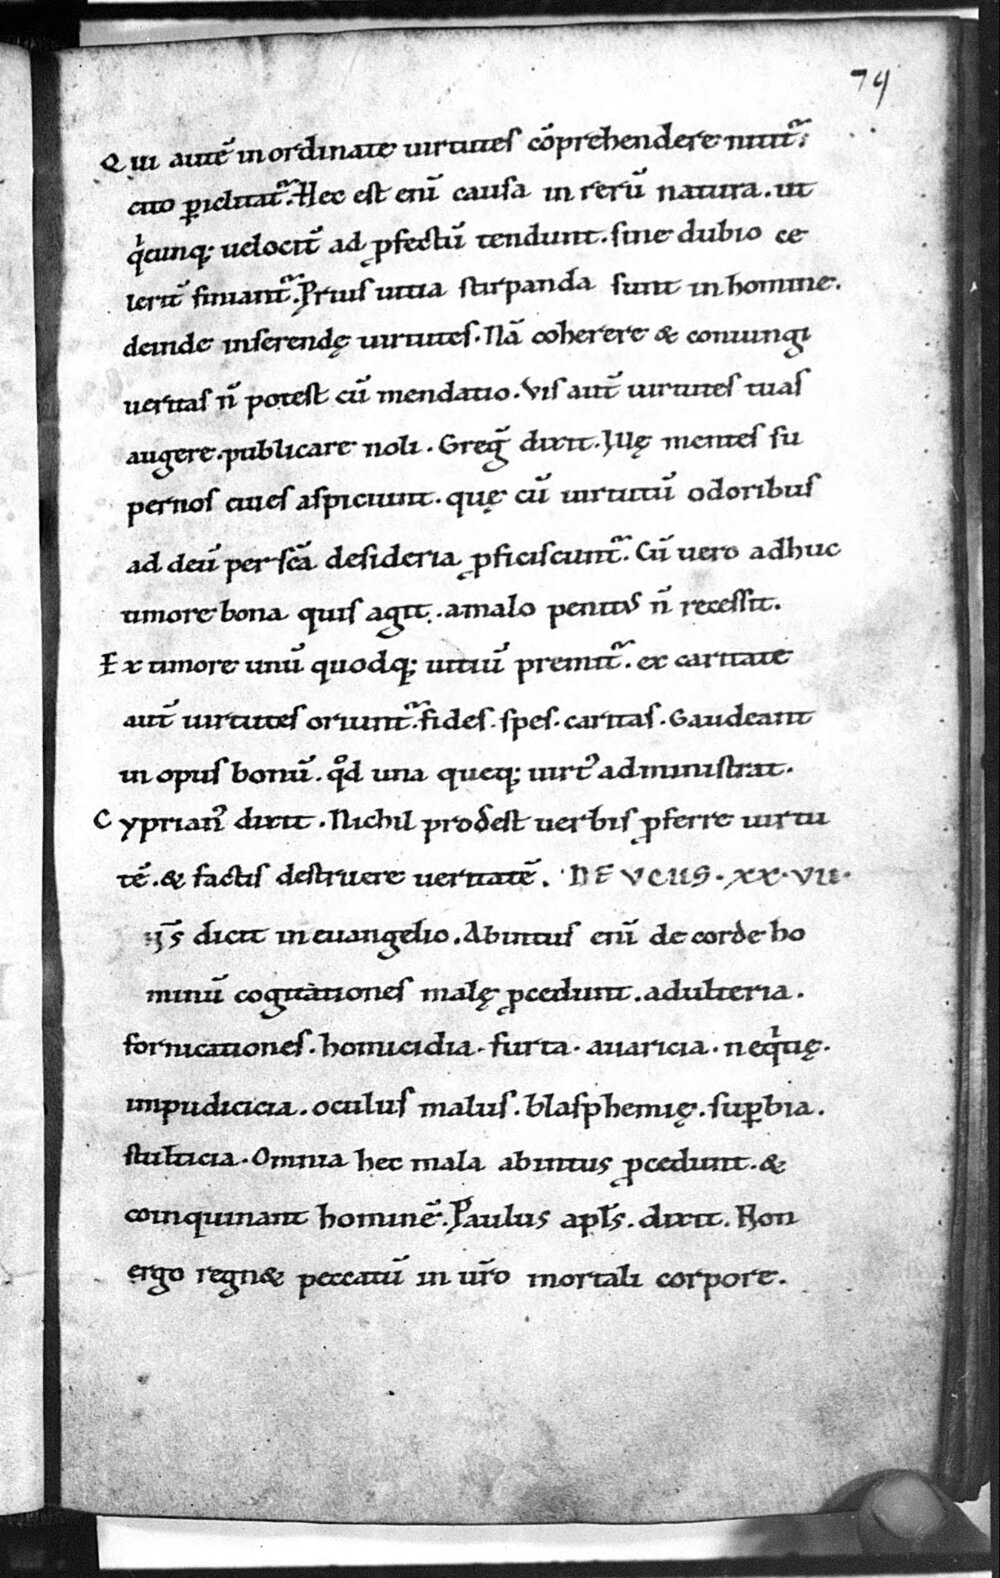 79
Qui autē inordinate uirtutes cōprehendere nitit᷑;
cito ꝑiclitat᷑. Hec est enī causa in rerū natura. ut
qͥcunq; uelociꝰ ad ꝓfectū tendunt. sine dubio ce
leriꝰ finiant᷑. Prius uitia stirpanda sunt in homine.
deinde inserendę uirtutes. Nā coherere & coniungi
ueritas n̄ potest cū mendatio. Vis aut̄ uirtutes tuas
augere. publicare noli. Greg̃ dixit. Illę mentes su
pernos ciues aspiciunt. quę cū uirtutū odoribus
ad deū per sc̄a desideria ꝓficiscunt᷑. Cū uero adhuc
timore bona quis agit. amalo penitus n̄ recessit.
Ex timore unū quodq; uitiū premit᷑. ex caritate
aut̄ uirtutes oriunt᷑. fides. spes. caritas. Gaudeant
in opus bonū. qͦd una queq; uirtꝰ administrat.
Cyprianꝰ dixit. Nichil prodest uerbis ꝓferre uirtu
tē. & factis destruere ueritatē. DE VCIIS. XX. VII.
dn̄s dicit in euangelio. Abintus enī de corde ho
minū cogitationes malę ꝓcedunt. adulteria.
fornicationes. homicidia. furta. auaricia. neqͥtię.
impudicicia. oculus malus. blasphemię. suꝑbia.
stulticia. Omnia hec mala abintus ꝓcedunt. &
coinquinant hominē. Paulus apl̄s. dixit. Non
ergo regn& peccatū in ur̄o mortali corpore.